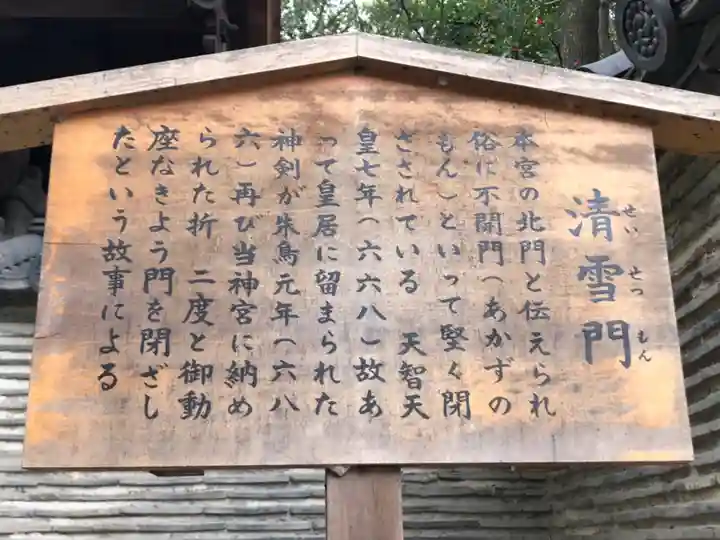 清雪門
せいせつもん
本宮の北門と伝えられ
俗に不開門(あかずの
もん)といって堅く閉
さされている 天智天
皇七年(六六八)故あ
って皇居に留まられた
神剣が朱鳥元年(六八
六)再び当神宮に納め
られた折 二度と御動
座なきよう門を閉ざし
たという故事による